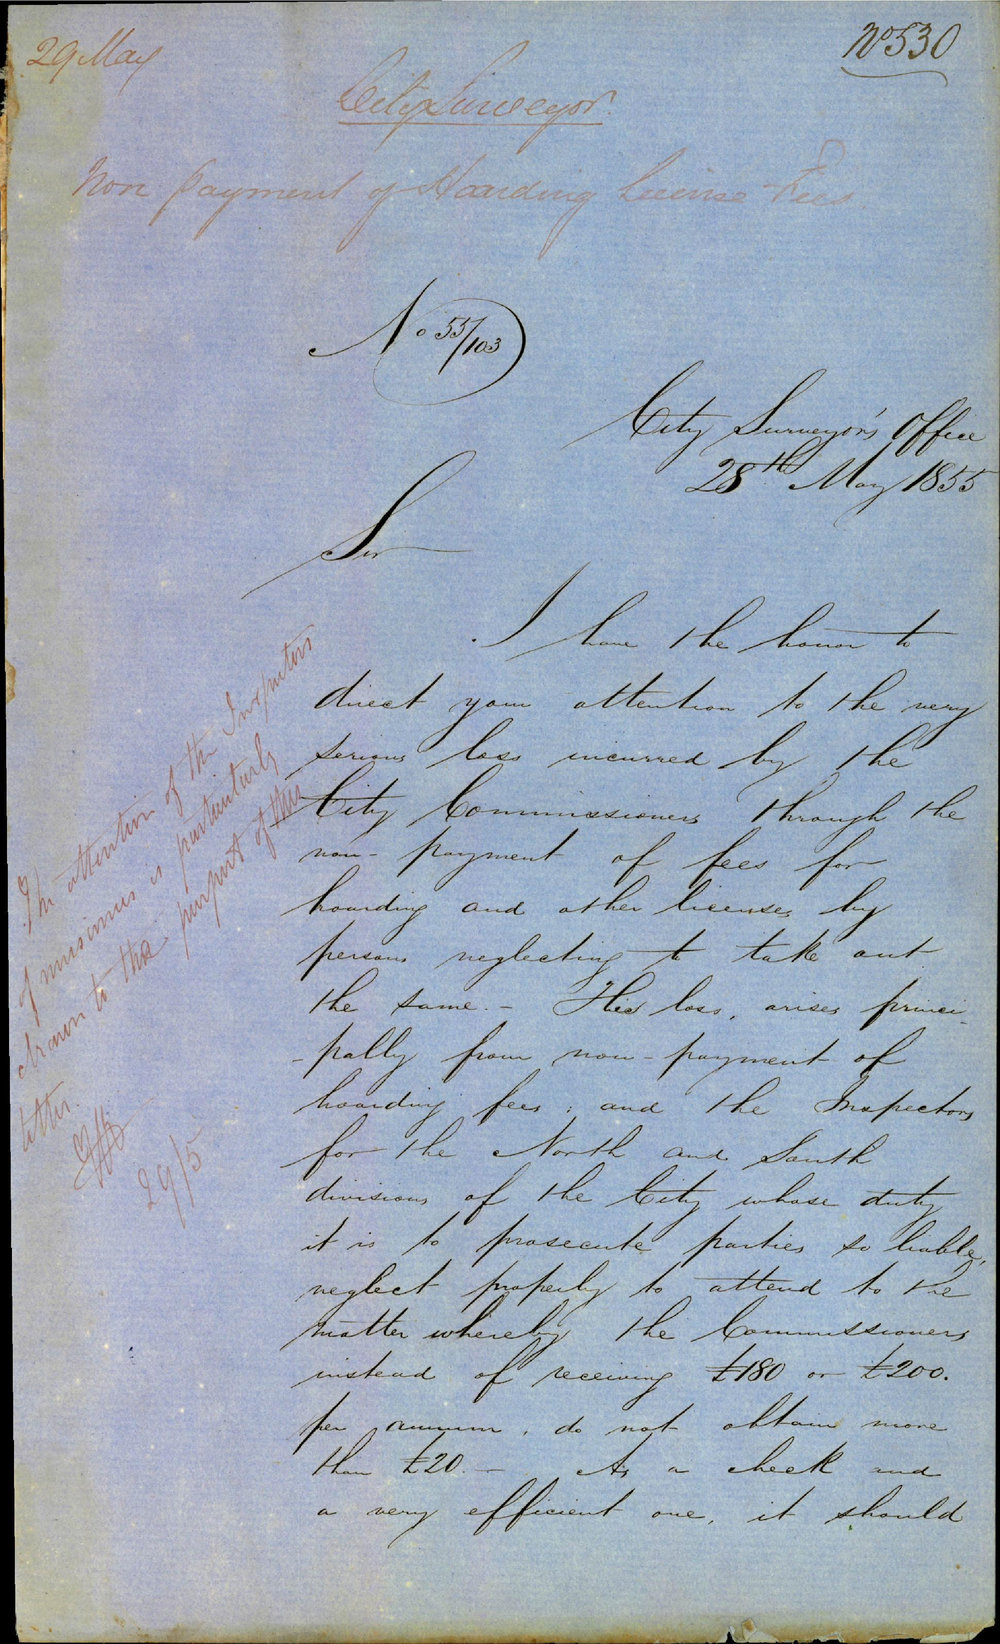 29 May
No 530
City Surveyor.
Non payment of Hoarding License Fees.
No 55/103
City Surveyor's Office
28th May 1855
Sir
I have the honor to
direct your attention to the very
serious loss incurred by the
City Commissioners through the
non-payment of fees for
hoarding and other licenses by
persons neglecting to take out
the same. - This loss, arises princi-
-pally from non-payment of
hoarding fees; and the Inspectors
for the North and South
divisions of the City whose duty
it is to prosecute parties so liable,
neglect properly to attend to the
matter whereby the Commissioners
instead of receiving £180 or £200.
per annum, do not obtain more
than £20. - As a check and
a very efficient one, it should
The attention of the Inspectors
of nuisances is particularly
drawn to the purport of this
letter.
29/5